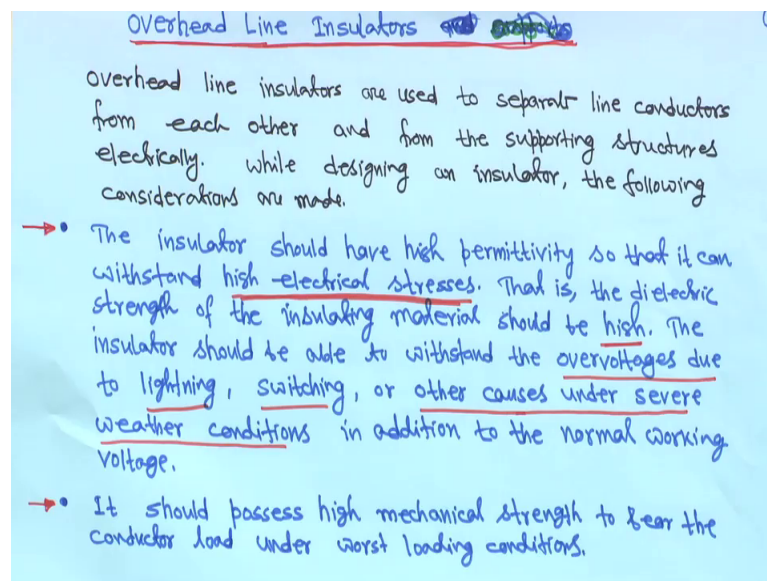 Overhead Line Insulators
overhead line insulators are used to separate line conductors
from each other and from the supporting structures
electrically. While designing an insulator, the following
considerations are made.
• The insulator should have high permittivity so that it can
withstand high electrical stresses. That is, the dielectric
strength of the insulating material should be high. The
insulator should be able to withstand the overvoltages due
to lightning, switching, or other causes under severe
weather conditions in addition to the normal working
voltage.
• It should possess high mechanical strength to bear the
conductor load under worst loading conditions.